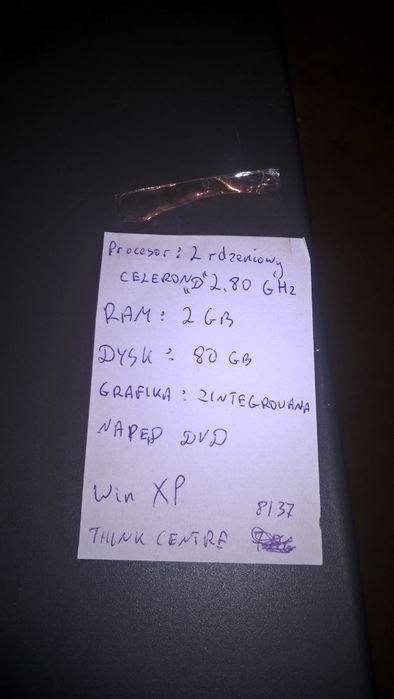 Procesor: 2 rdzeniowy
CELERON „D" 2,80 GHz
RAM: 2 GB
DYSK: 80 GB
GRAFIKA: ZINTEGROWANA
NAPĘD DVD
Win XP
8137
THINK CENTRE